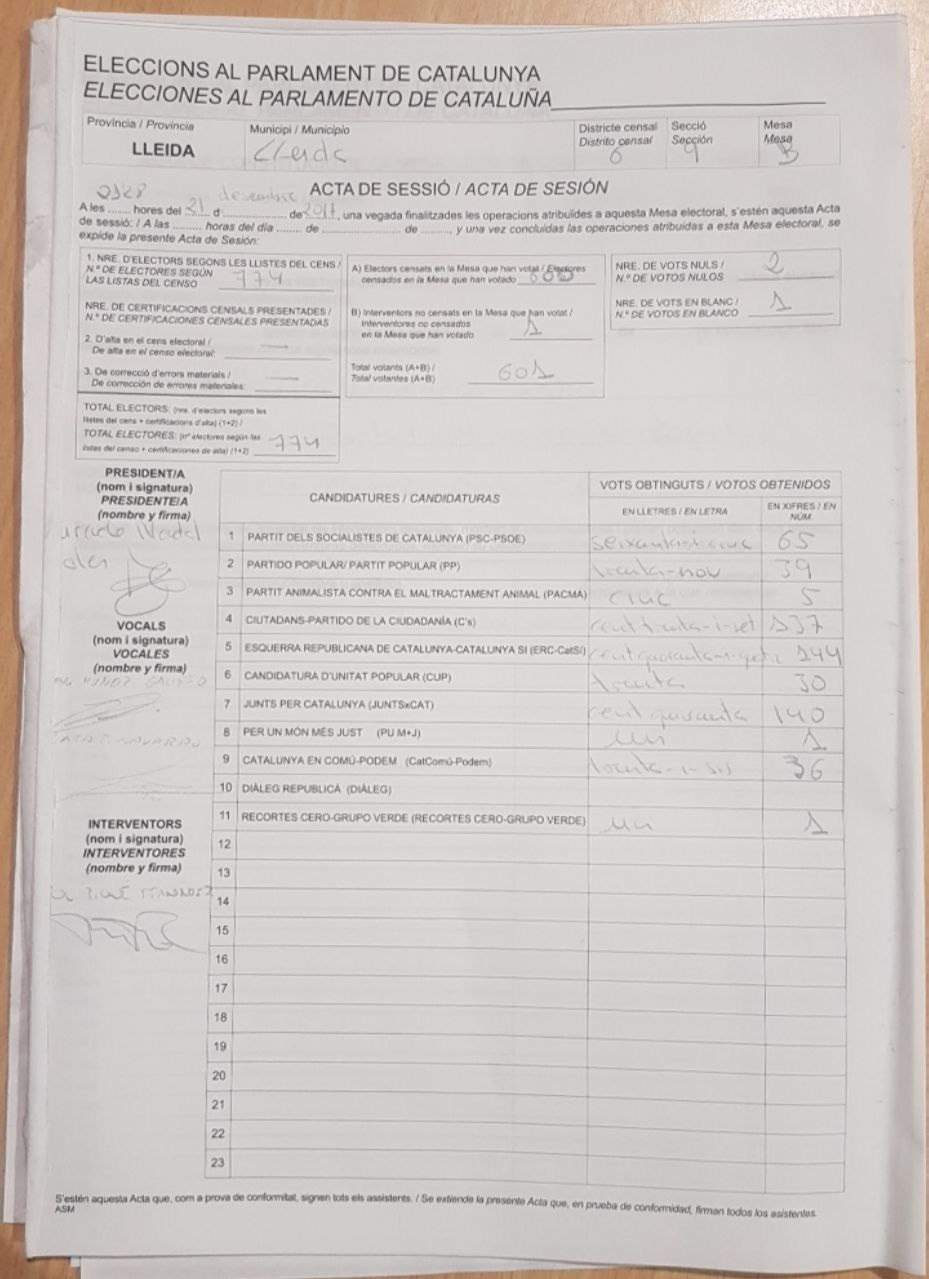 ELECCIONS AL PARLAMENT DE CATALUNYA
ELECCIONES AL PARLAMENTO DE CATALUÑA
Província / Provincia
LLEIDA
Municipi / Municipio
Lleida
Districte censal
Distrito censal
6
Secció
Sección
9
Mesa
Mesa
B
ACTA DE SESSIÓ / ACTA DE SESIÓN
A les ....... hores del 21 d desembre de 2017, una vegada finalitzades les operacions atribuïdes a aquesta Mesa electoral, s'estén aquesta Acta
de sessió: / A las ......... horas del día ........ de ...................... de ........, y una vez concluidas las operaciones atribuidas a esta Mesa electoral, se
expide la presente Acta de Sesión:
1. NRE. D'ELECTORS SEGONS LES LLISTES DEL CENS /
N.º DE ELECTORES SEGÚN
LAS LISTAS DEL CENSO 774
NRE. DE CERTIFICACIONS CENSALS PRESENTADES /
N.º DE CERTIFICACIONES CENSALES PRESENTADAS
2. D'alta en el cens electoral /
De alta en el censo electoral: —
3. De correcció d'errors materials /
De corrección de errores materiales: —
TOTAL ELECTORS: (nre. d'electors segons les
llistes del cens + certificacions d'alta) (1+2) /
TOTAL ELECTORES: (nº electores según las
listas del censo + certificaciones de alta) (1+2) 774
A) Electors censats en la Mesa que han votat / Electores
censados en la Mesa que han votado 600
B) Interventors no censats en la Mesa que han votat /
Interventores no censados
en la Mesa que han votado 1
Total votants (A+B) /
Total votantes (A+B) 601
NRE. DE VOTS NULS /
N.º DE VOTOS NULOS 2
NRE. DE VOTS EN BLANC /
N.º DE VOTOS EN BLANCO 1
PRESIDENT/A
(nom i signatura)
PRESIDENTE/A
(nombre y firma)
VOCALS
(nom i signatura)
VOCALES
(nombre y firma)
INTERVENTORS
(nom i signatura)
INTERVENTORES
(nombre y firma)
CANDIDATURES / CANDIDATURAS
VOTS OBTINGUTS / VOTOS OBTENIDOS
EN LLETRES / EN LETRA
EN XIFRES / EN
NÚM.
1 PARTIT DELS SOCIALISTES DE CATALUNYA (PSC-PSOE) seixanta-i-cinc 65
2 PARTIDO POPULAR/ PARTIT POPULAR (PP) trenta-nou 39
3 PARTIT ANIMALISTA CONTRA EL MALTRACTAMENT ANIMAL (PACMA) cinc 5
4 CIUTADANS-PARTIDO DE LA CIUDADANÍA (C's) cent trenta-i-set 137
5 ESQUERRA REPUBLICANA DE CATALUNYA-CATALUNYA SÍ (ERC-CatSí) 144
6 CANDIDATURA D'UNITAT POPULAR (CUP) trenta 30
7 JUNTS PER CATALUNYA (JUNTSxCAT) cent quaranta 140
8 PER UN MÓN MÉS JUST (PU M+J) un 1
9 CATALUNYA EN COMÚ-PODEM (CatComú-Podem) trenta-i-sis 36
10 DIÀLEG REPUBLICÀ (DIÀLEG)
11 RECORTES CERO-GRUPO VERDE (RECORTES CERO-GRUPO VERDE) un 1
12
13
14
15
16
17
18
19
20
21
22
23
S'estén aquesta Acta que, com a prova de conformitat, signen tots els assistents. / Se extiende la presente Acta que, en prueba de conformidad, firman todos los asistentes.
ASM